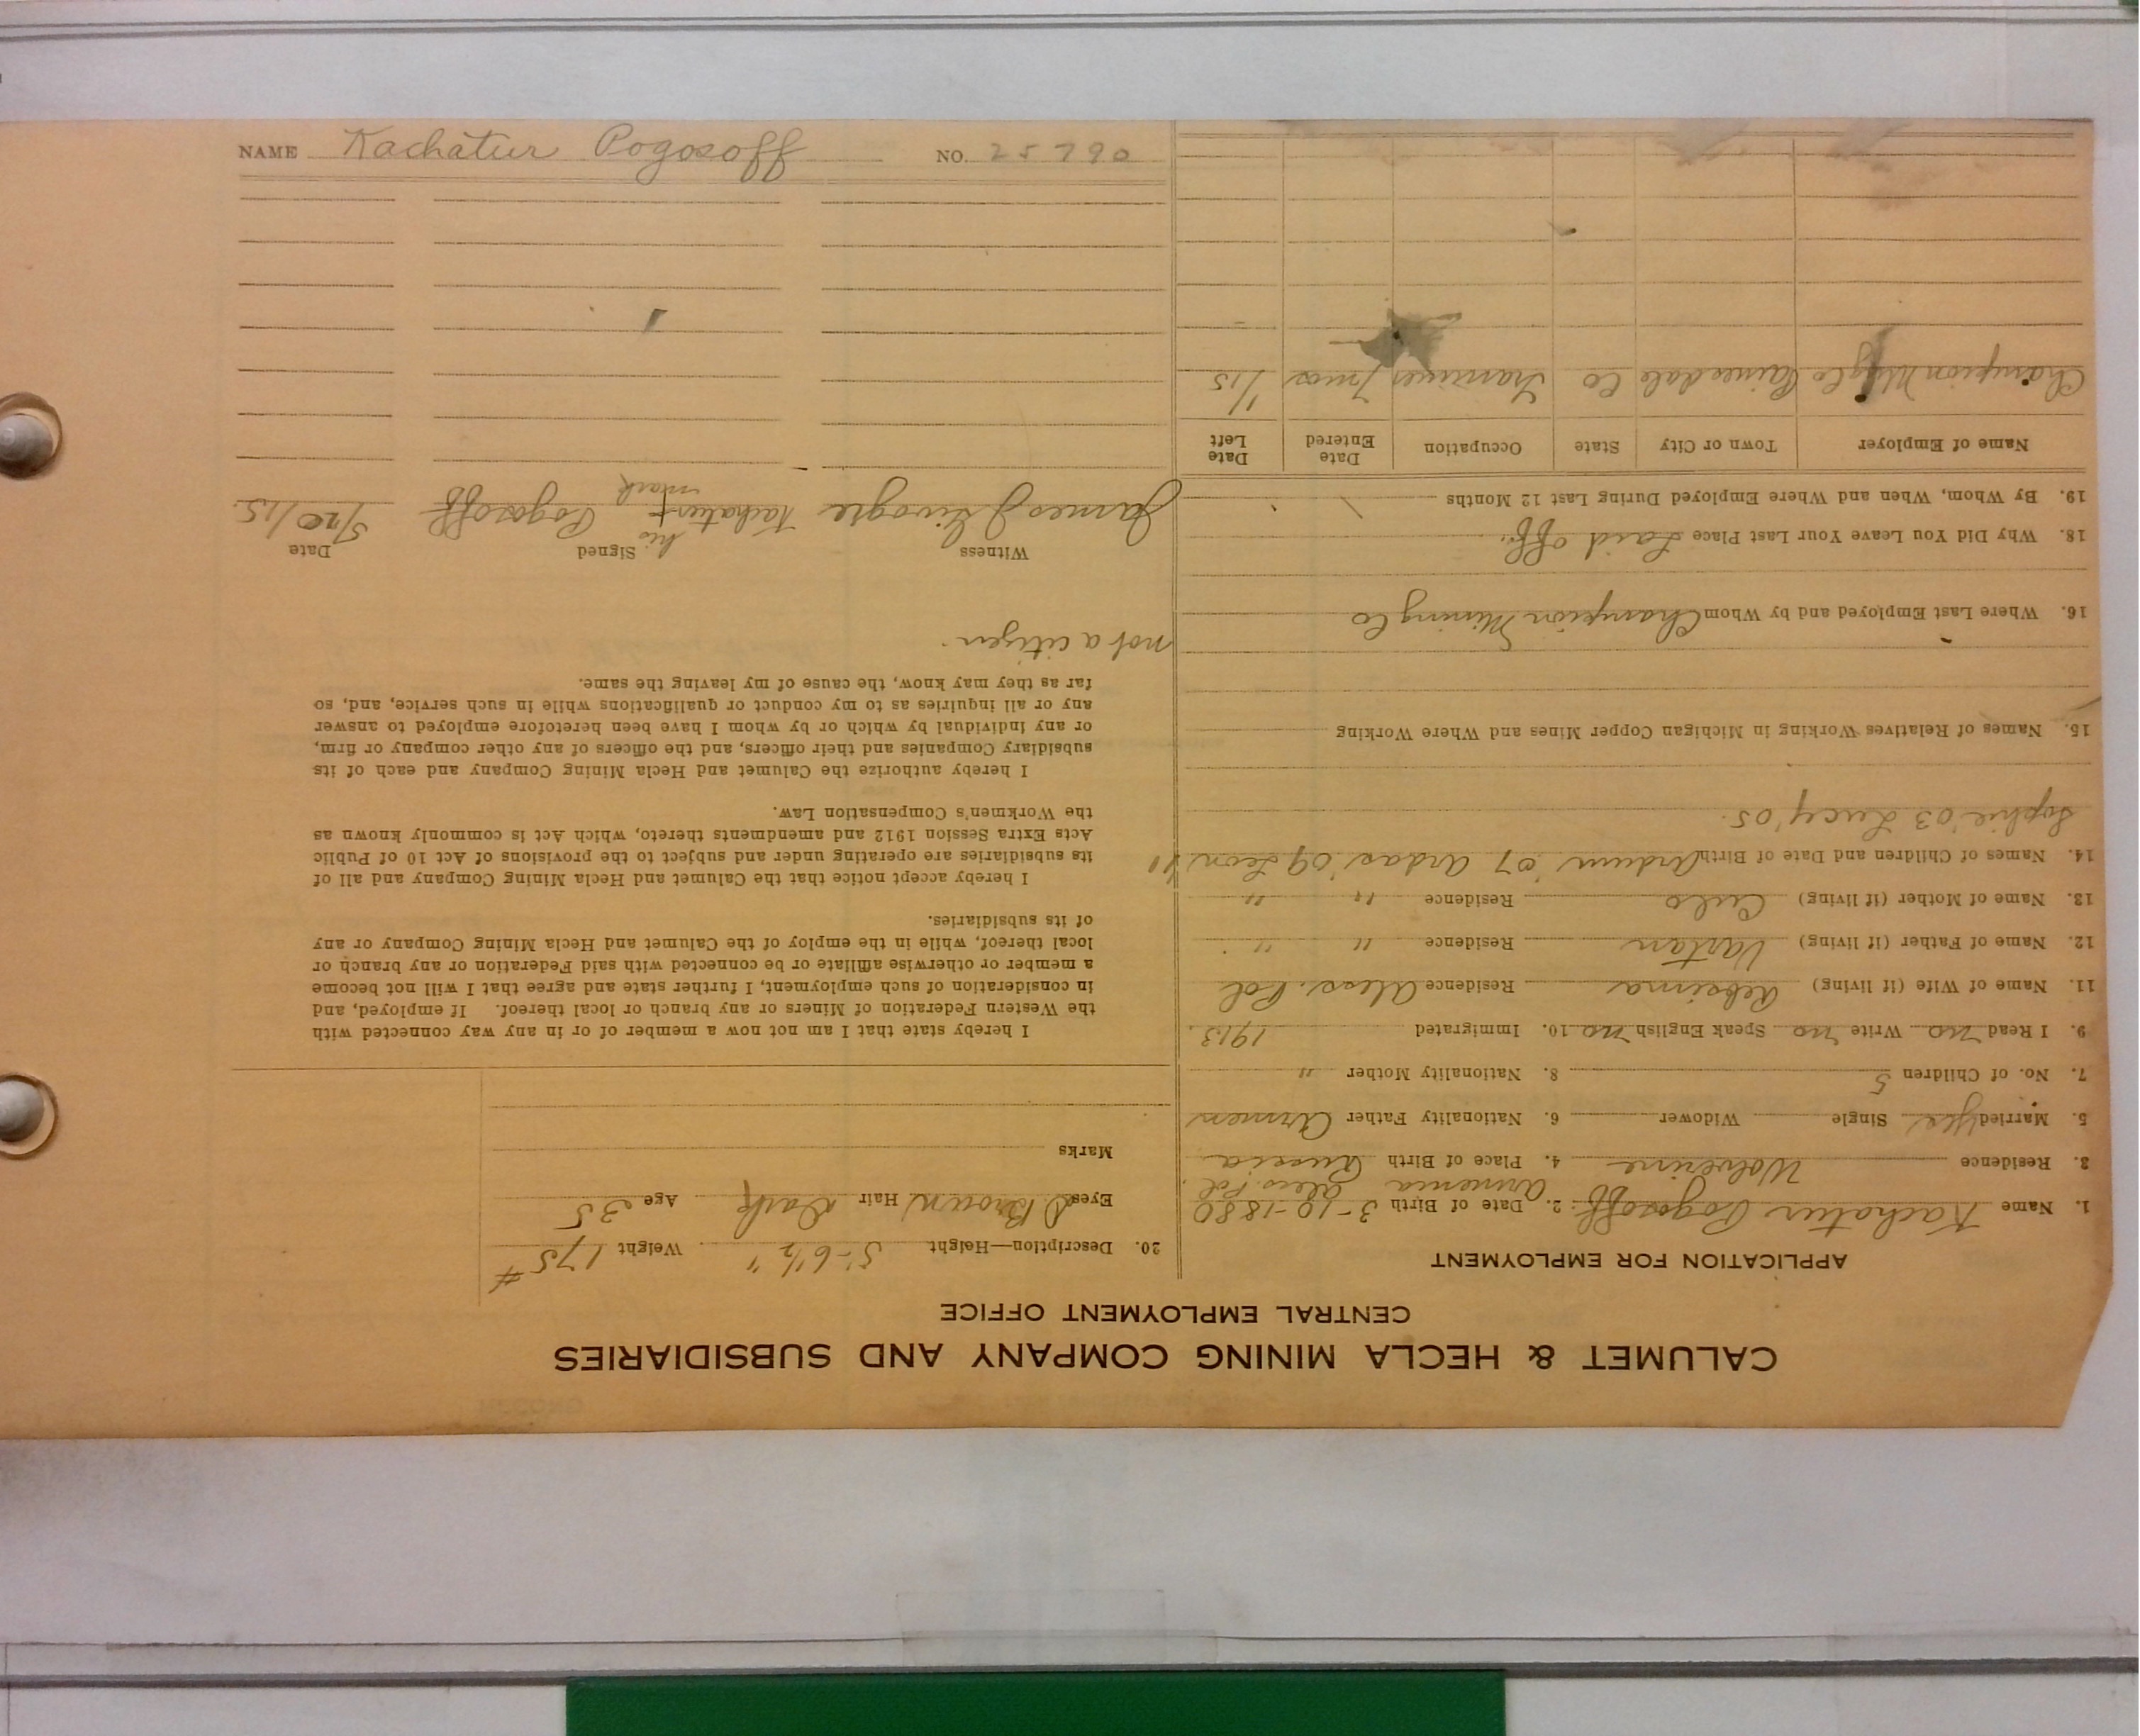 CALUMET & HECLA MINING COMPANY AND SUBSIDIARIES
CENTRAL EMPLOYMENT OFFICE
APPLICATION FOR EMPLOYMENT
1. Name Kachatur Pogosoff 2. Date of Birth 3-10-1880
Armenia Alex. Pol.
3. Residence Wolverine 4. Place of Birth Russia
5. Married yes Single Widower 6. Nationality Father Armen
7. No. of Children 5 8. Nationality Mother "
9. I Read no Write no Speak English no 10. Immigrated 1913.
11. Name of Wife (if living) Rebsima Residence Alex. Pol
12. Name of Father (if living) Vartan Residence " "
13. Name of Mother (if living) Residence " "
14. Names of Children and Date of Birth '07 Ardas '09 Leon '11
Sophie '03 Lucy '05.
15. Names of Relatives Working in Michigan Copper Mines and Where Working
16. Where Last Employed and by Whom Champion Mining Co
18. Why Did You Leave Your Last Place Laid off.
19. By Whom, When and Where Employed During Last 12 Months
Name of Employer Town or City State Occupation Date Entered Date Left
Champion Mfg Co Painesdale Co Trammer 7 mos 1/15
20. Description—Height 5-6½" Weight 175#
Eyes D Brown Hair Dark Age 35
Marks
I hereby state that I am not now a member of or in any way connected with
the Western Federation of Miners or any branch or local thereof. If employed, and
in consideration of such employment, I further state and agree that I will not become
a member or otherwise affiliate or be connected with said Federation or any branch or
local thereof, while in the employ of the Calumet and Hecla Mining Company or any
of its subsidiaries.
I hereby accept notice that the Calumet and Hecla Mining Company and all of
its subsidiaries are operating under and subject to the provisions of Act 10 of Public
Acts Extra Session 1912 and amendments thereto, which Act is commonly known as
the Workmen's Compensation Law.
I hereby authorize the Calumet and Hecla Mining Company and each of its
subsidiary Companies and their officers, and the officers of any other company or firm,
or any individual by which or by whom I have been heretofore employed to answer
any or all inquiries as to my conduct or qualifications while in such service, and, so
far as they may know, the cause of my leaving the same.
not a citizen.
Witness Signed Date
his
James J Kachatur + Pogosoff 5/20/15.
mark
NAME Kachatur Pogosoff NO. 25790